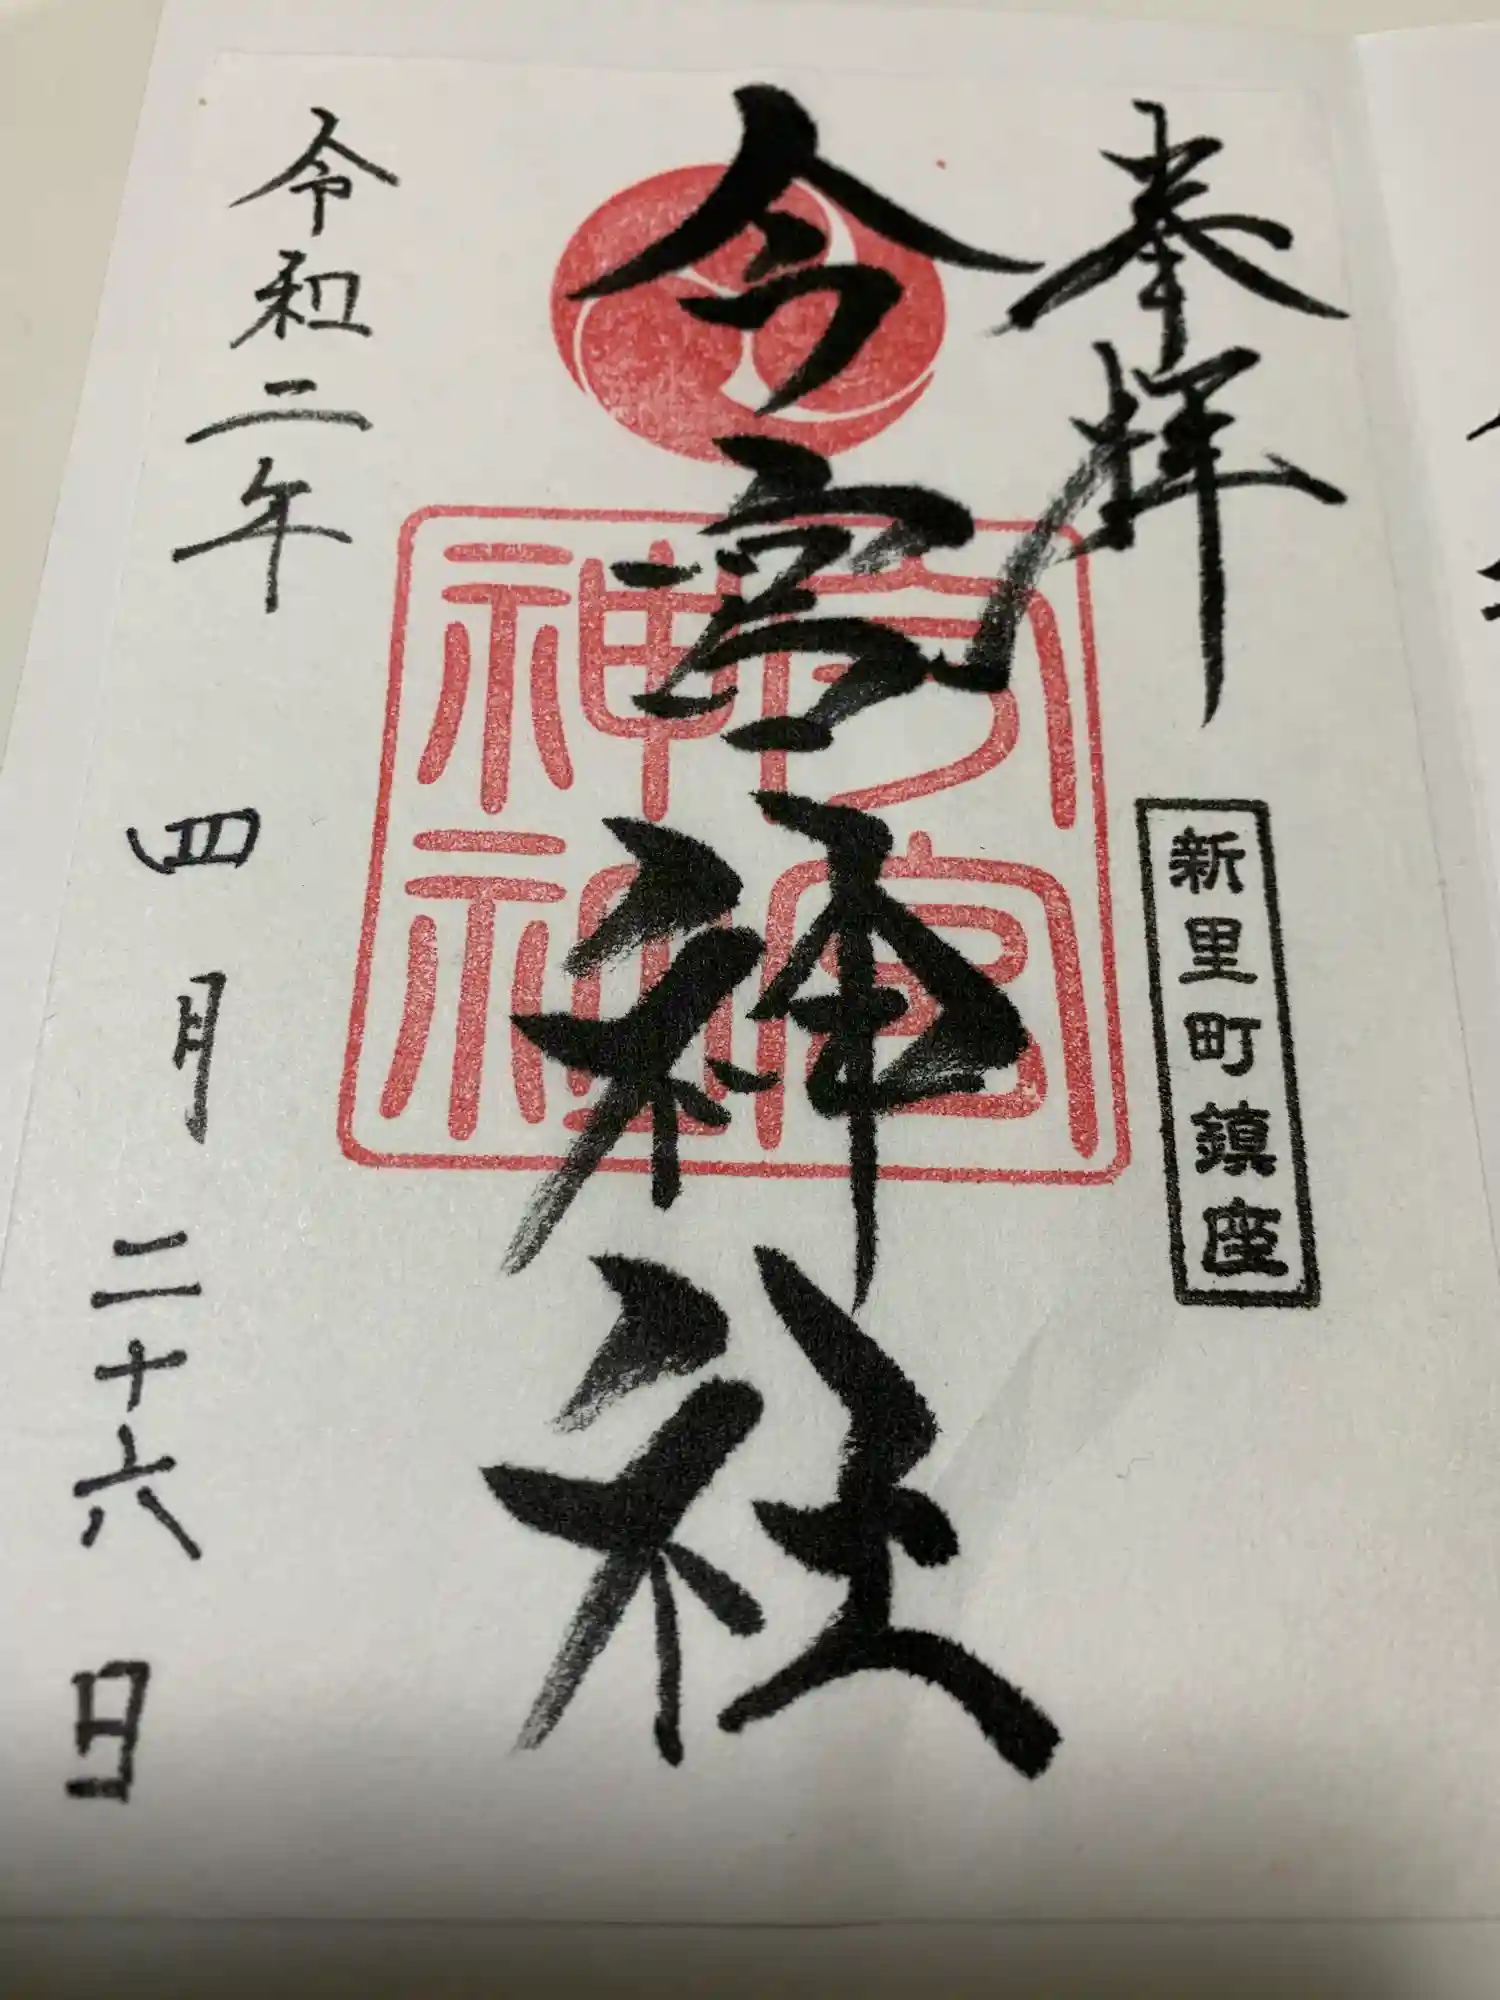 奉拝
新里町鎮座
今宮神社
今宮
神社
令和二年
四月二十六日